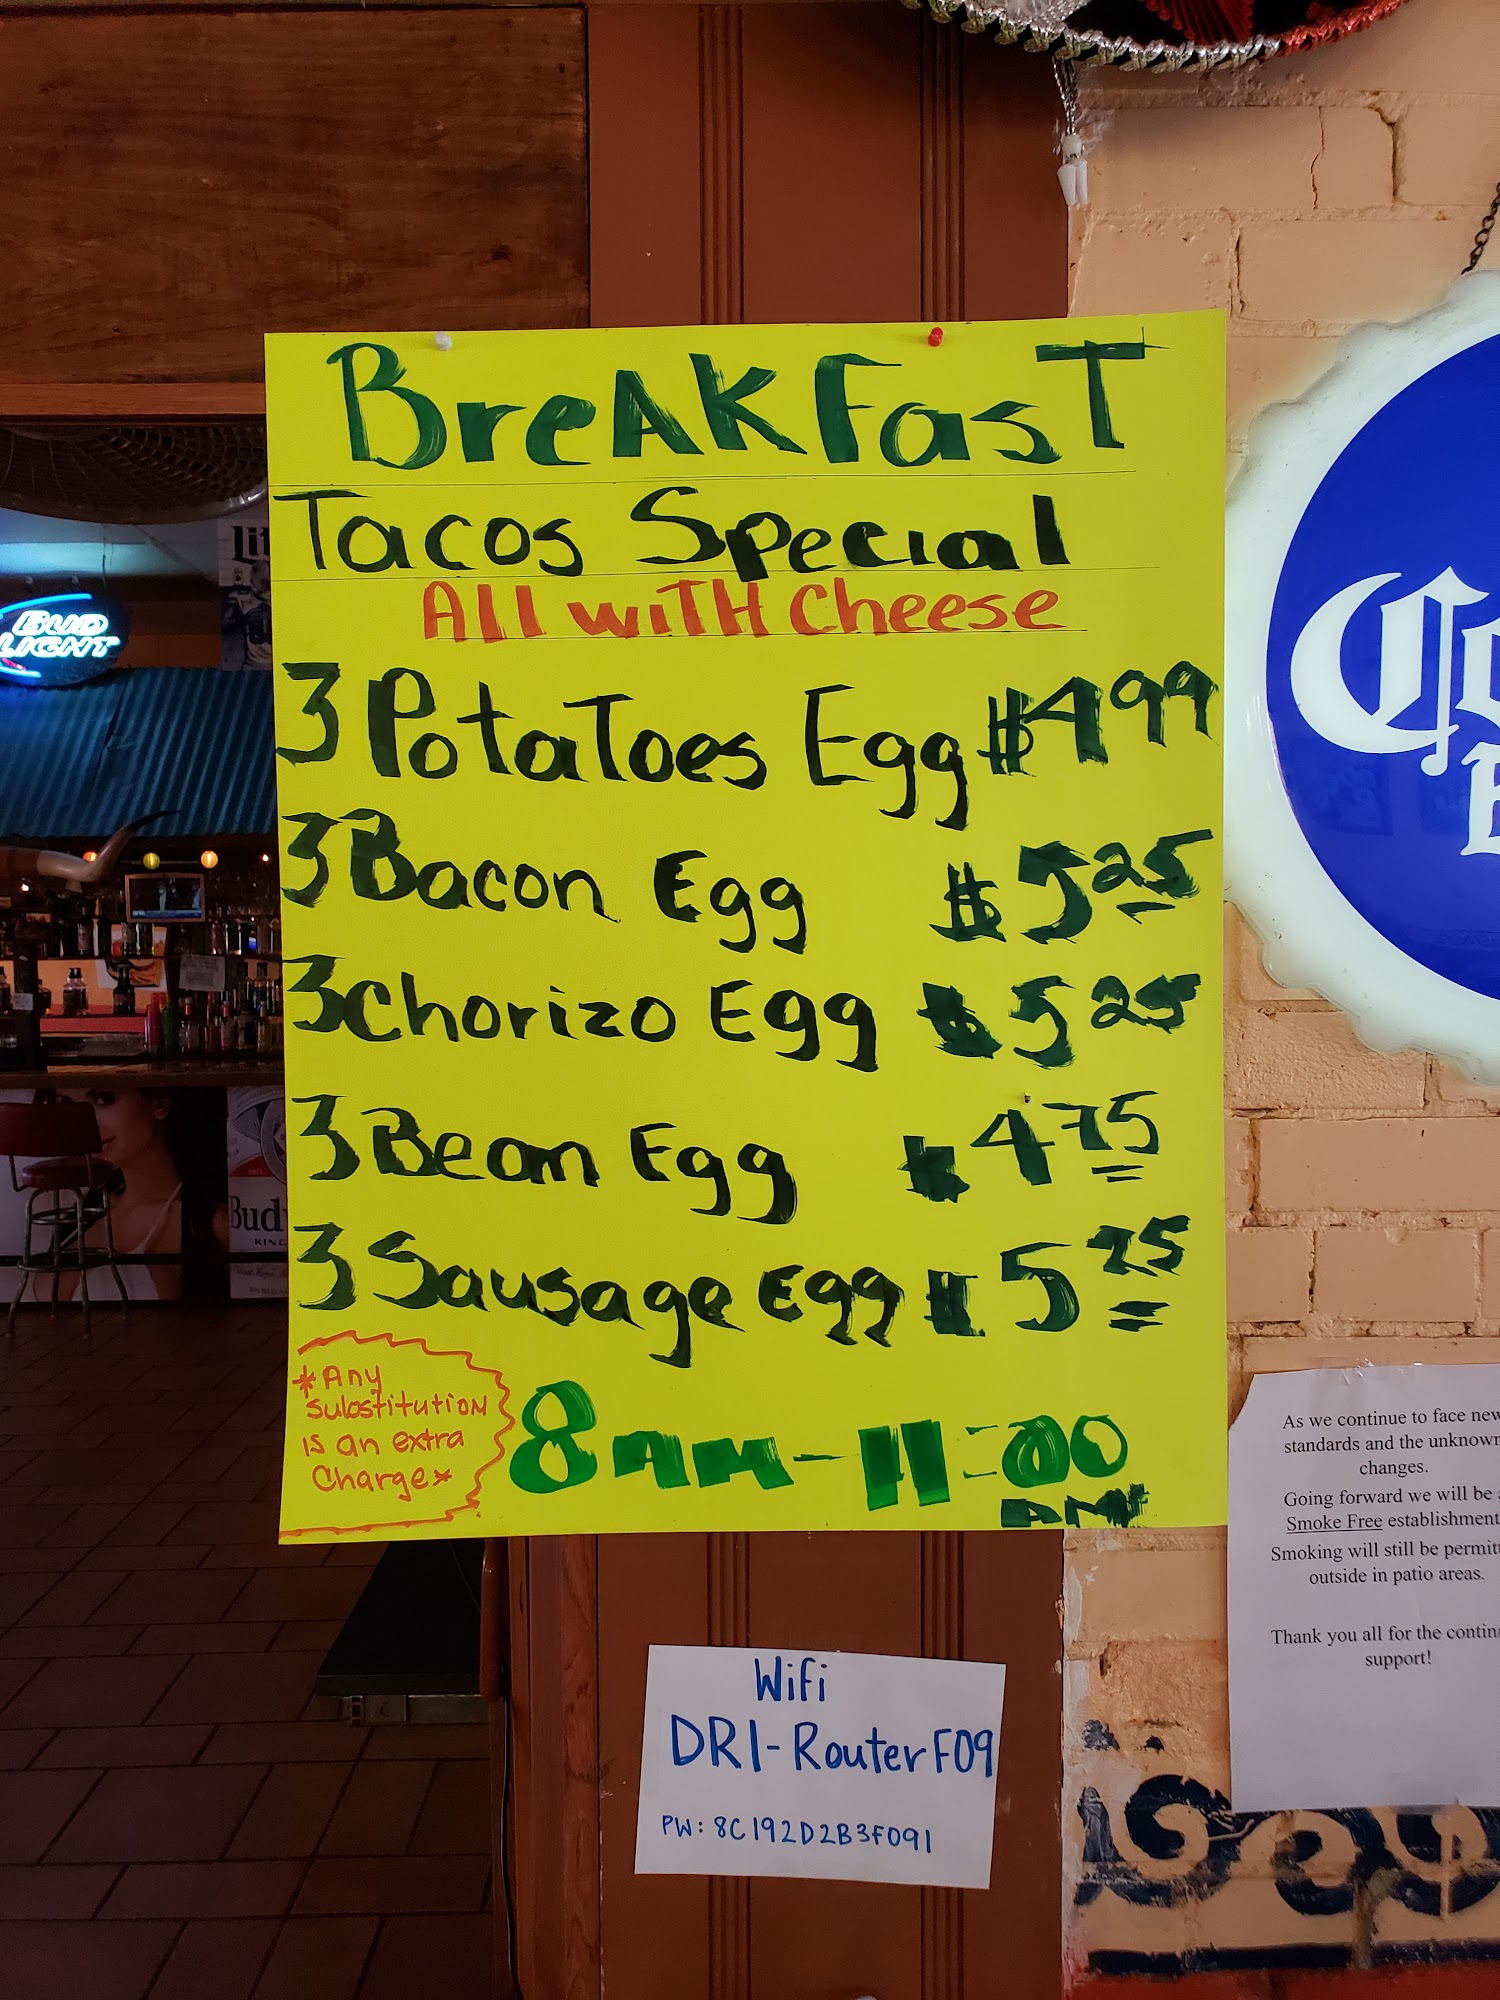 BreAKFasT
Tacos Special
All wiTH Cheese
3 PotaToes Egg $4 99
3 Bacon Egg $5 25
3 Chorizo Egg $5 25
3 Bean Egg $4 75
3 Sausage Egg $5
*Any
substitution
is an extra
Charge*
8 AM - 11:00
AM
BUD
LIGHT
Bud
KING
As we continue to face new
standards and the unknown
changes.
Going forward we will be
Smoke Free establishment
Smoking will still be permit
outside in patio areas.
Thank you all for the contin
support!
Wifi
DRI-RouterF09
PW: 8C192D2B3F091